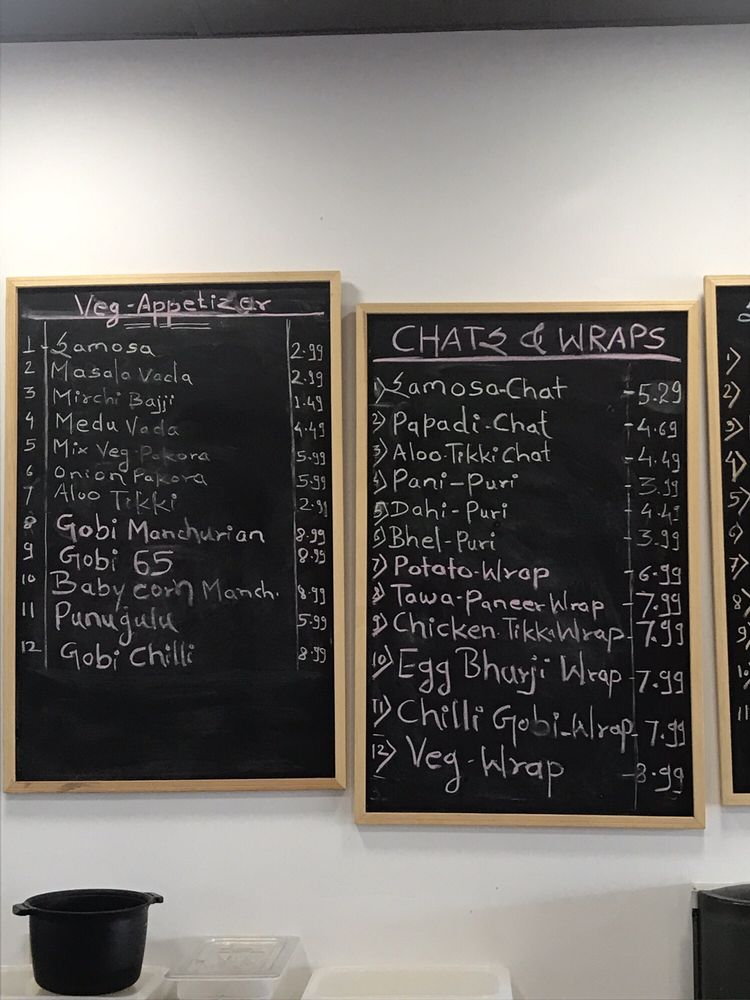 Veg-Appetizer
1 - Samosa 2.99
2 Masala Vada 2.99
3 Mirchi Bajji 1.49
4 Medu Vada 4.49
5 Mix Veg-Pakora 5.99
6 Onion Pakora 5.99
7 Aloo Tikki 2.99
8 Gobi Manchurian 8.99
9 Gobi 65 8.99
10 Baby corn Manch. 8.99
11 Punugulu 5.99
12 Gobi Chilli 8.99
CHATS & WRAPS
1) Samosa-Chat - 5.29
2) Papadi-Chat - 4.69
3) Aloo-Tikki Chat - 4.49
4) Pani-Puri - 3.99
5) Dahi-Puri - 4.49
6) Bhel-Puri - 3.99
7) Potato-Wrap - 6.99
8) Tawa-Paneer Wrap - 7.99
9) Chicken Tikka Wrap - 7.99
10) Egg Bhurji Wrap - 7.99
11) Chilli Gobi-Wrap - 7.99
12) Veg-Wrap
1)
2)
3)
4)
5)
6)
7)
8)
9)
10)
11